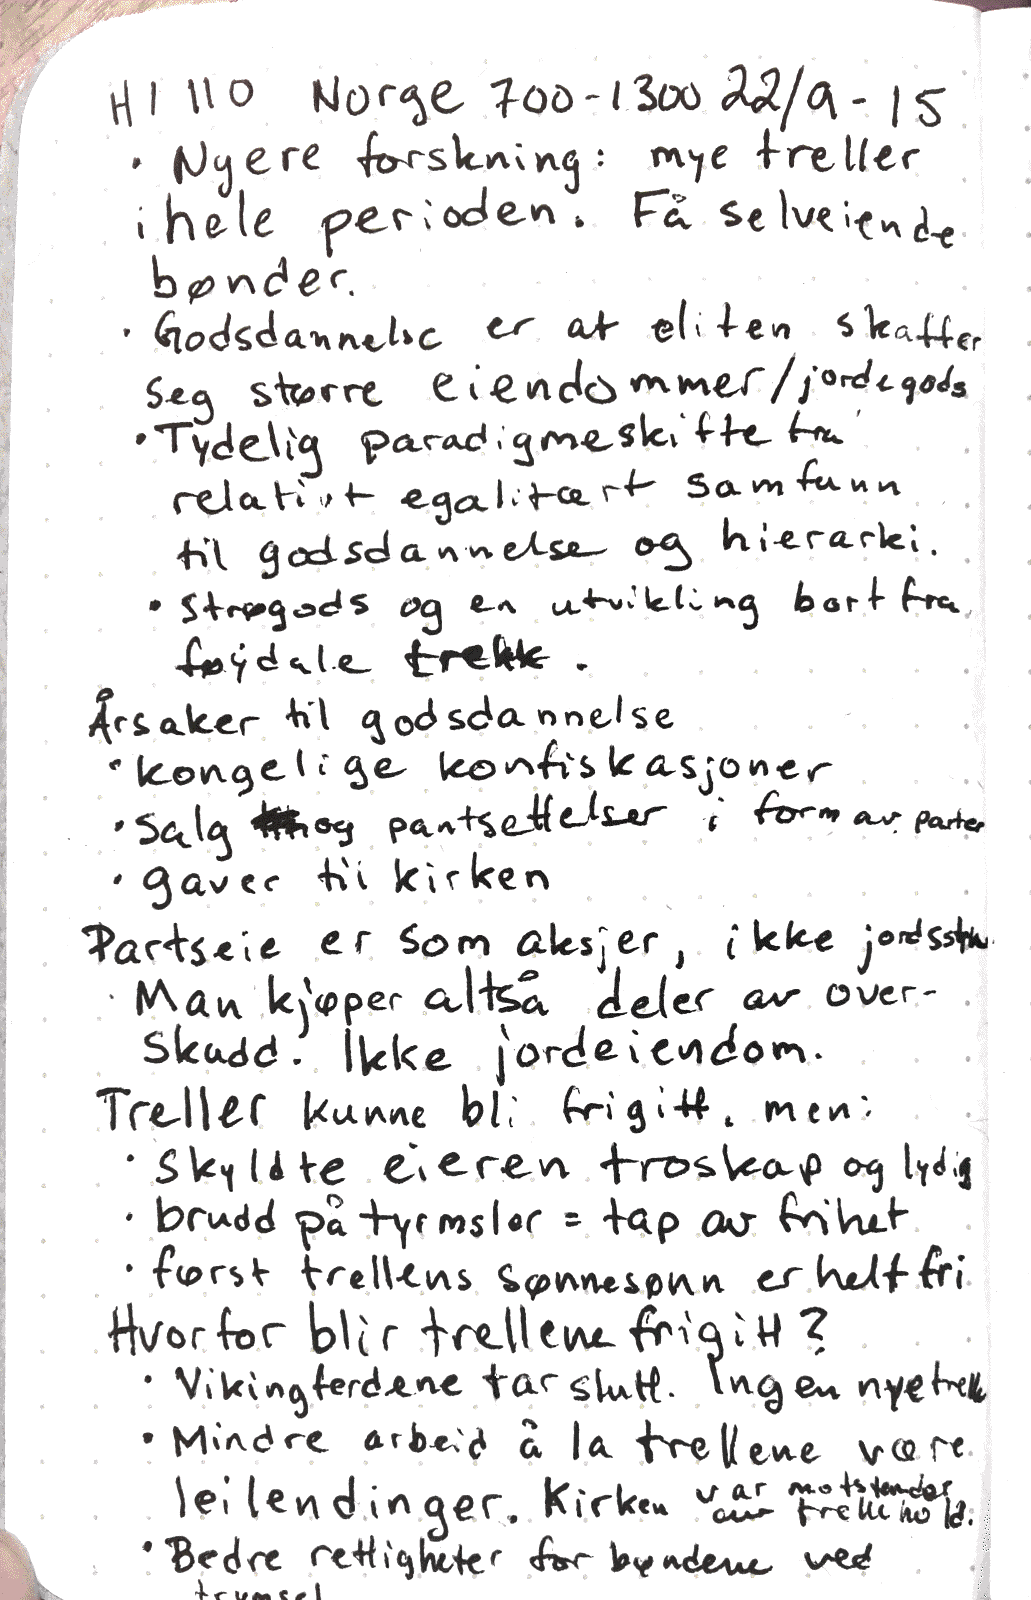 HI 110 Norge 700-1300 22/9-15
• Nyere forskning: mye treller
i hele perioden. Få selveiende
bønder.
• Godsdannelse er at eliten skaffer
seg større eiendommer/jordegods
• Tydelig paradigmeskifte fra
relativt egalitært samfunn
til godsdannelse og hierarki.
• Strøgods og en utvikling bort fra
føydale trekk.
Årsaker til godsdannelse
• kongelige konfiskasjoner
• salg og pantsettelser i form av parter
• gaver til kirken
Partseie er som aksjer, ikke
• Man kjøper altså deler av over-
skudd. Ikke jordeiendom.
Treller kunne bli frigitt, men:
• skyldte eieren troskap og lydig
• brudd på tyrmsler = tap av frihet
• først trellens sønnesønn er helt fri
Hvorfor blir trellene frigitt?
• Vikingferdene tar slutt. Ingen nye trelle
• Mindre arbeid å la trellene være
leilendinger. Kirken var motstander
av trellehold.
• Bedre rettigheter for bøndene ved